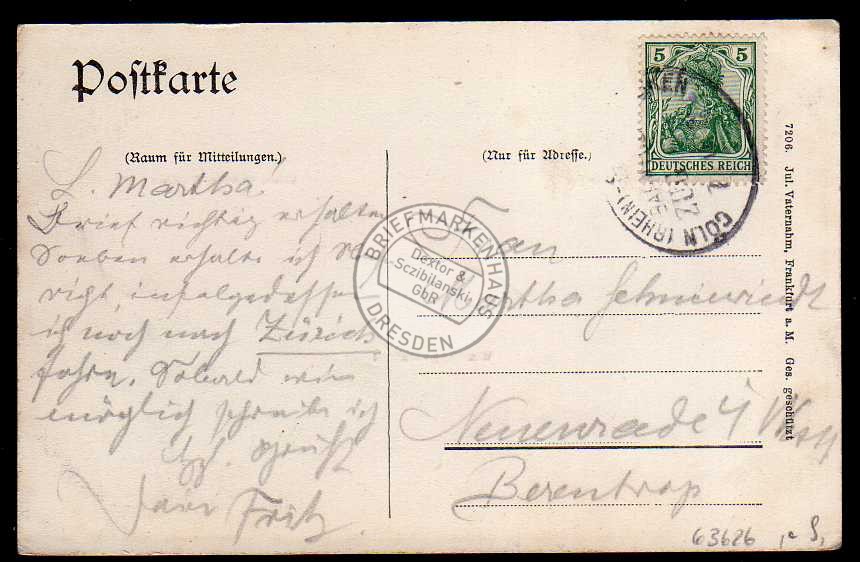 Postkarte
(Raum für Mitteilungen.)
L. Martha!
Brief richtig erhalten
Soeben erhalte ich
infolgedessen
ich noch nach Zürich
fahren. Sobald wie
möglich schreibe ich
Dein Fritz.
(Nur für Adresse.)
Frau
Martha Schniewindt
Neuenrade i/ Westf
Berentrop
5 5
DEUTSCHES REICH
CÖLN (RHEIN)
BRIEFMARKENHAUS
Dextor &
Sczibilanski
GbR
DRESDEN
7206. Jul. Vaternahm, Frankfurt a. M. Ges. geschützt
63626